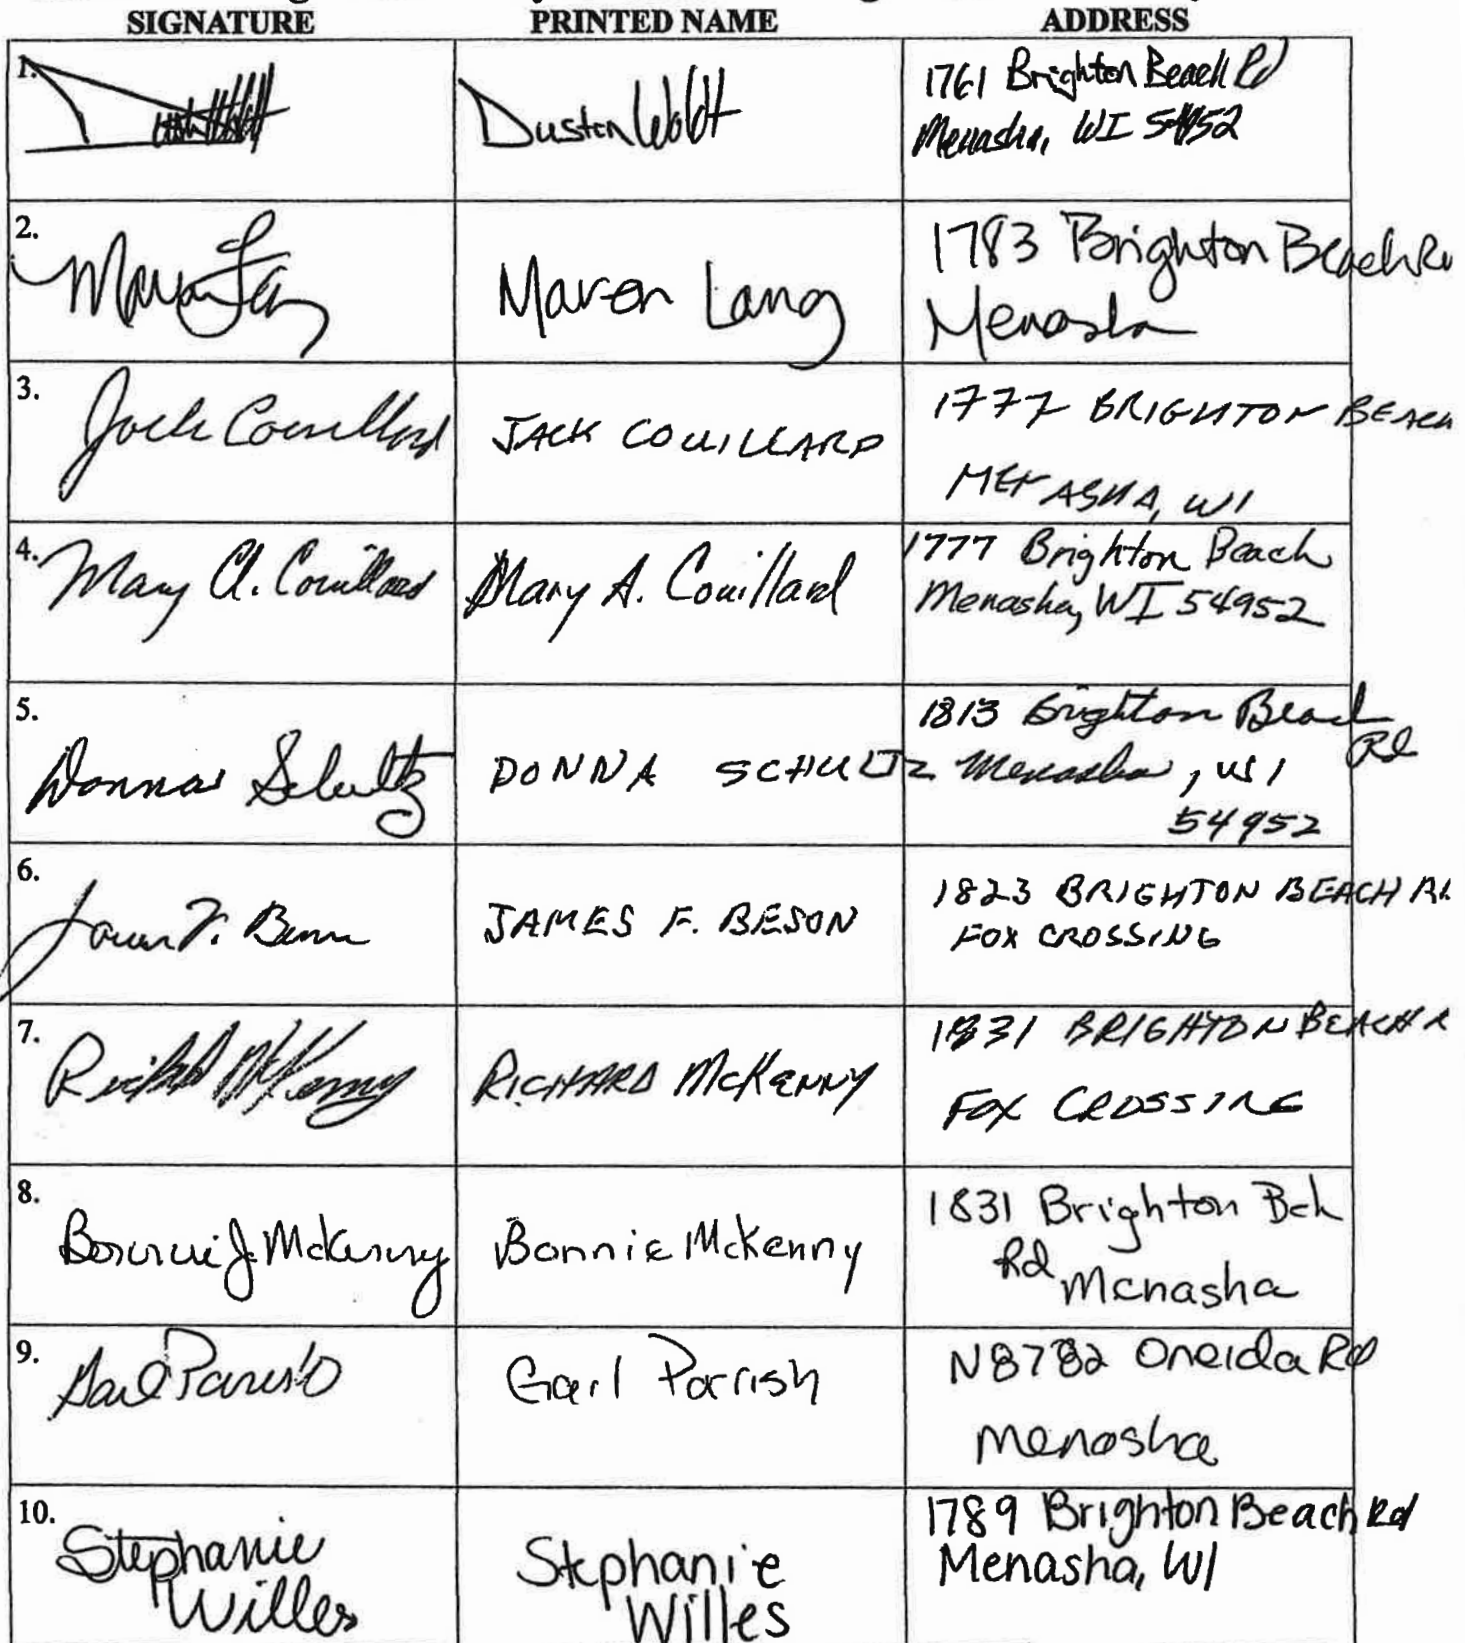 SIGNATURE PRINTED NAME ADDRESS
1. Dustin Woldt 1761 Brighton Beach Rd
Menasha, WI 54952
2. Maren Lang Maren Lang 1783 Brighton Beach Rd
Menasha
3. Jack Couillard JACK COUILLARD 1777 BRIGHTON BEACH
MENASHA, WI
4. Mary A. Couillard Mary A. Couillard 1777 Brighton Beach
Menasha, WI 54952
5. Donna Schultz DONNA SCHULTZ 1813 Brighton Beach Rd
Menasha, WI
54952
6. James F. Beson JAMES F. BESON 1823 BRIGHTON BEACH Rd
FOX CROSSING
7. Richard McKenny RICHARD McKENNY 1831 BRIGHTON BEACH R
FOX CROSSING
8. Bonnie J. McKenny Bonnie McKenny 1831 Brighton Bch
Rd Menasha
9. Gail Parrish Gail Parrish N8782 Oneida Rd
Menasha
10. Stephanie Willes Stephanie Willes 1789 Brighton Beach Rd
Menasha, WI